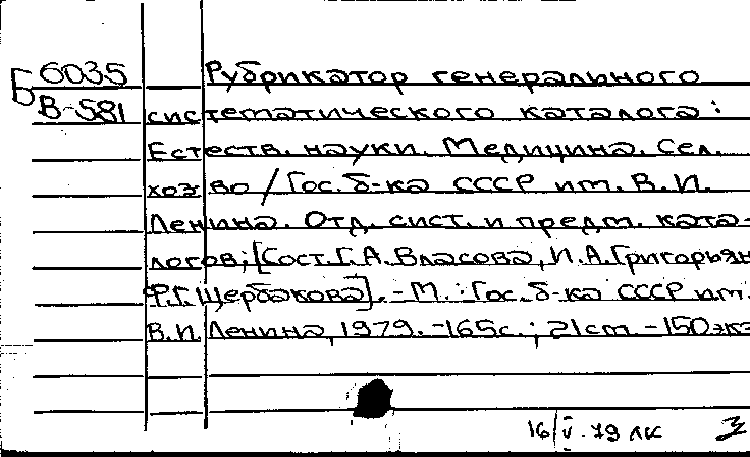 Б 6035 Рубрикатор генерального
В-581 систематического каталога:
Естеств. науки. Медицина. Сел.
хоз-во / Гос. б-ка СССР им. В.И.
Ленина. Отд. сист. и предм. ката-
логов; [Сост. Г.А. Власова, И.А. Григорьян
Ф.Г. Щербакова]. - М.: Гос. б-ка СССР им.
В.И. Ленина, 1979. - 165с.; 21см - 150экз
16/V-79 ЛК З